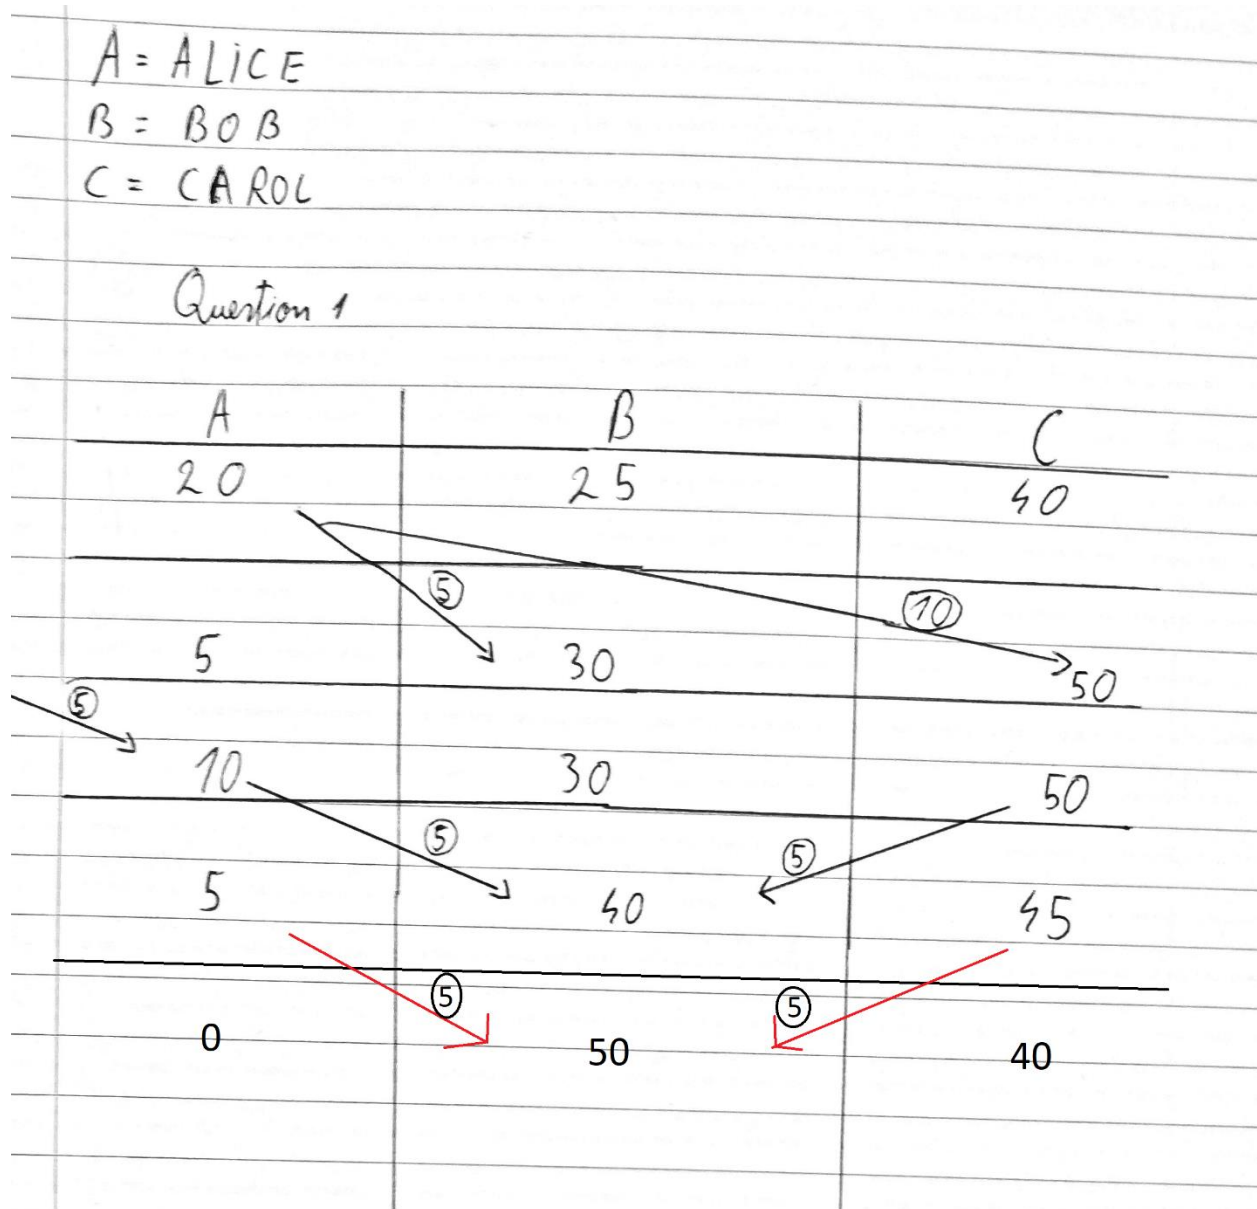 A = ALiCE
B = BOB
C = CAROL
Question 1
A B C
20 25 40
5 10
5 30 50
5
10 30 50
5 5
5 40 45
5 5
0 50 40